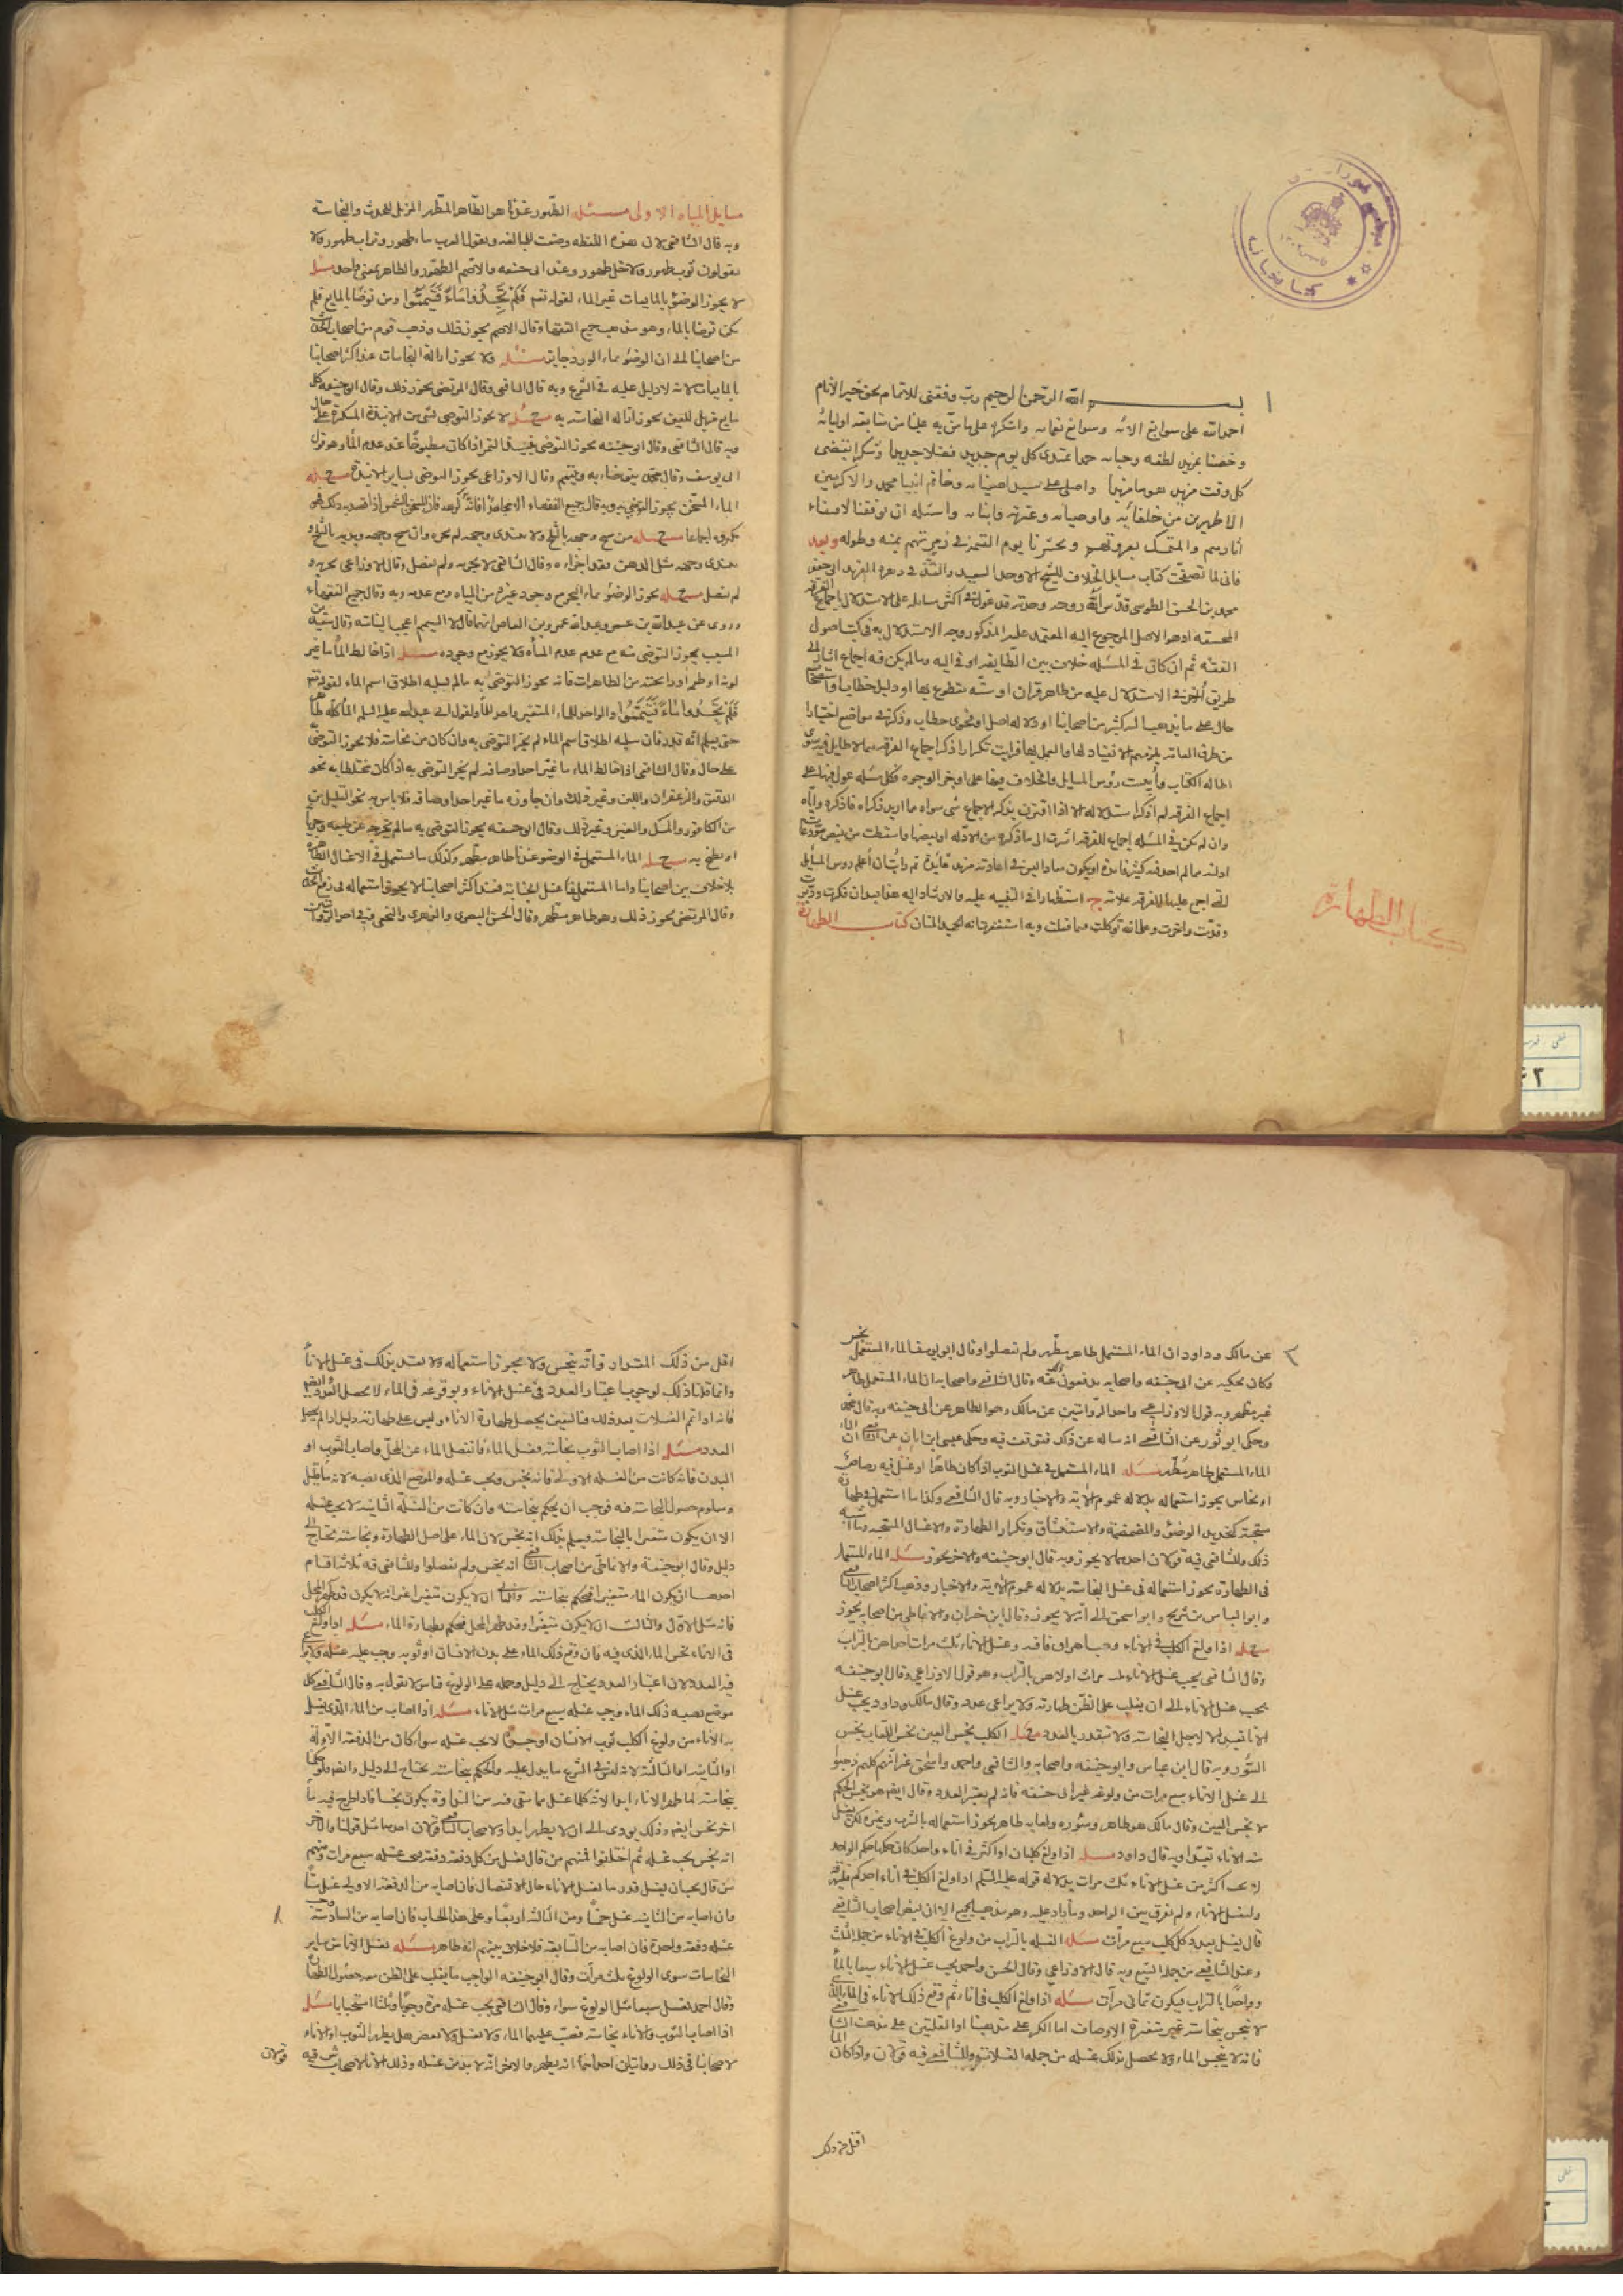 بسم الله الرحمن الرحيم رب وفقني للاتمام بحق خير الانام
احمد الله على سوابغ الآئه وسوابغ نعمائه واشكره على ما منّ به علينا من متابعة اوليائه
وخصنا بمزيد لطفه حمدا يتجدد كل يوم جديد فضلا جديدا وشكرا يقتضى
كل وقت مزيد واصلى على سيد اصفيائه وخاتم انبيائه محمد والاكرمين
الاطهرين من خلفائه واوصيائه وعترته وابنائه واسئله ان يوفقنا لاقتفاء
آثارهم والتمسك بعروتهم ويحشرنا يوم القيمة في زمرتهم بمنه وطوله وبعد
فانى لما تصفحت كتاب مسايل الخلاف للشيخ الاوحد السعيد في دهره الفريد ابى جعفر
محمد بن الحسن الطوسى قدس الله روحه وجدته قد عوّل في اكثر مسائله على الاستدلال باجماع الفرقة
المحقة اذ هو الاصل المرجوع اليه المعتمد عليه المذكور وجه الاستدلال به في كتب اصول
الفقه ثم ان كان في المسئله خلاف بين الطايفة او في اليه وما لم يكن فيه اجماع اشار الى
طريق اخرى في الاستدلال عليه من ظاهر قران او سنّة مقطوع بها او دليل خطاب او استصحاب
حال على ما يذهب اليه كثير من اصحابنا او دلاله اصل او فحوى خطاب وذكر في مواضع اخبارا
من طرق العامة يلزمهم الانقياد لها والعمل بها فرايت تكرار ذكر اجماع الفرقه مما لا طايل فيه سوى
اطالة الكتاب واثبت رؤس المسايل والخلاف فيها على اوجز الوجوه وكل مسئله عول فيها على
اجماع الفرقه لم اذكر استدلاله الا اذا اقترن بذكر الاجماع شى سواه مما اريد ذكره فاذكره واياه
وان لم يكن في المسئله اجماع للفرقه اشرت الى ما ذكره من الادله او بعضها واسقطت من بعض
ادلته ما لم اجد فيه كثير فايدة او يكون في اعادته مزيد فايدة ثم رايت ان اعلم رؤس المسايل
التي اجمع عليها الفرقه علامة ج استظهارا في التنبيه عليه والارشاد اليه
وقدمت واخرت وعلى الله توكلت فيما فعلت وبه استعنت انه الحميد المنان كتاب الطهارة
كتاب الطهارة
مسايل المياه الاولى مسئله الطهور عندنا هو الطاهر المطهر المزيل للحدث والنجاسة
وبه قال الشافعى لان هذه اللفظه وضعت للمبالغه ويقول العرب ماء طهور وتراب طهور ولا
يقولون ثوب طهور ولا خل طهور وعند ابى حنيفه والاصم الطهور والطاهر بمعنى واحد مسئله
لا يجوز الوضوء بالمايعات غير الماء لقوله تعالى فَلَمْ تَجِدُوا مَاءً فَتَيَمَّمُوا ومن توضا بالمايع فلم
يكن توضا بالماء وهو مذهب جميع الفقهاء وقال الاصم يجوز ذلك وذهب قوم من اصحاب الحديث
من اصحابنا الى ان الوضوء بماء الورد جايز مسئله ولا يجوز ازالة النجاسات عند اكثر اصحابنا
بالمايعات لانه لا دليل عليه في الشرع وبه قال الشافعى وقال المرتضى يجوز ذلك وقال ابو حنيفه كل
مايع مزيل للعين يجوز ازالة النجاسة به مسئله لا يجوز التوضى بشى من الانبذة المسكرة على حال
وبه قال الشافعى وقال ابو حنيفه يجوز التوضى بنبيذ التمر اذا كان مطبوخا عند عدم الماء وهو قول
ابى يوسف وقال محمد يتوضاء به ويتيمم وقال الاوزاعى يجوز التوضى بساير الانبذة مسئله
الماء المسخن يجوز التوضى به وبه قال جميع الفقهاء الا مجاهدا فانه كرهه
مكروه اجماعا مسئله من مسح وجهه بالثلج ولا يتندى وجهه لم يجزه وان مسح وجهه ويديه بالثلج و
يتندى وجهه مثل الدهن فقد اجزاه وقال الشافعى لا يجزيه ولم يفصل وقال الاوزاعى يجزيه و
لم يفصل مسئله يجوز الوضوء بماء البحر مع وجود غيره من المياه ومع عدمه وبه قال جميع الفقهاء
وروى عن عبد الله بن عمر وعبد الله بن عمرو بن العاص انهما قالا التيمم اعجب الينا منه وقال سعيد بن
المسيب يجوز التوضى منه مع عدم الماء ولا يجوز مع وجوده مسئله اذا خالط الماء ما غير
لونه او طعمه او رايحته من الطاهرات فانه يجوز التوضى به ما لم يسلبه اطلاق اسم الماء لقوله تعالى
فَلَمْ تَجِدُوا مَاءً فَتَيَمَّمُوا والواجد للماء المتغير واجد للماء ولقول ابى عبد الله عليه السلم الماء كله طاهر
حتى يعلم انه قذر فان سلبه اطلاق اسم الماء لم يجز التوضى به وان كان من نجاسة فلا يجوز التوضى
على حال وقال الشافعى اذا خالط الماء ما غيّر احد اوصافه لم يجز التوضى به اذا كان مختلطا به نحو
الدقيق والزعفران واللبن وغير ذلك وان جاوره ما غير احد اوصافه فلا باس به نحو القليل من
من الكافور والمسك والعنبر وغير ذلك وقال ابو حنيفه يجوز التوضى به ما لم يخرجه عن طبعه وجريانه
او يطبخ به مسئله الماء المستعمل في الوضوء عندنا طاهر مطهر وكذلك ما استعمل في الاغسال الطاهرة
بلا خلاف بين اصحابنا واما المستعمل في غسل الجنابة فعند اكثر اصحابنا لا يجوز استعماله في رفع الحدث
وقال المرتضى يجوز ذلك وهو طاهر مطهر وقال الحسن البصرى والزهرى والنخعى وفي احد الروايتين
عن مالك وداود ان الماء المستعمل طاهر مطهر ولم يفصلوا وقال ابو يوسف الماء المستعمل نجس
وكان يحكيه عن ابى حنيفه واصحابه يدفعون ذلك عنه وقال الشافعى واصحابه ان الماء المستعمل طاهر
غير مطهر وبه قول الاوزاعى واحد الروايتين عن مالك وهو الظاهر عن ابى حنيفه وبه قال محمد
وحكى ابو ثور عن الشافعى انه ساله عن ذلك فتوقف فيه وحكى عيسى ابن ابان عن الشافعى ان
الماء المستعمل طاهر مطهر مسئله الماء المستعمل في غسل الثوب اذا كان طاهرا او غسل فيه رصاص
او نحاس يجوز استعماله بدلاله عموم الاية والاخبار وبه قال الشافعى وكذا ما استعمل في طهارة
مستحبة كتجديد الوضوء والمضمضة والاستنشاق وتكرار الطهارة والاغسال المستحبه وما اشبه
ذلك وللشافعى فيه قولان احدهما لا يجوز وبه قال ابو حنيفه والاخر يجوز مسئله الماء المستعمل
في الطهارة يجوز استعماله في غسل النجاسة بدلاله عموم الاية والاخبار وذهب اكثر اصحاب الشافعى
وابو العباس بن سريج وابو اسحق الى انه لا يجوز وقال ابن خيران والانماطى من اصحابه يجوز
مسئله اذا ولغ الكلب في الاناء وجب اهراق ما فيه وغسل الاناء ثلث مرات احداهن بالتراب
وقال الشافعى يجب غسل الاناء سبع مرات اولاهن بالتراب وهو قول الاوزاعى وقال ابو حنيفه
يجب غسل الاناء الى ان يغلب على الظن طهارته ولا يراعى عدد وقال مالك وداود يجب غسل
الاناء تعبدا لا لاجل النجاسة ولا يتقدر بالعدد مسئله الكلب نجس العين نجس اللعاب نجس
السؤر وبه قال ابن عباس وابو حنيفه واصحابه والشافعى واحمد واسحق غير انهم كلهم ذهبوا
الى غسل الاناء سبع مرات من ولوغه غير ابى حنيفه فانه لم يعتبر العدد وقال ايضا هو نجس الحكم
لا نجس العين وقال مالك هو طاهر وسؤره ولعابه طاهر يجوز استعماله بالشرب وغيره لكن يغسل
منه الاناء تعبدا وبه قال داود مسئله اذا ولغ كلبان او اكثر في اناء واحد كان حكمهما حكم الواحد
لا يجب اكثر من غسل الاناء ثلث مرات بدلاله قوله عليه السلم اذا ولغ الكلب في اناء احدكم فليهرقه
وليغسل الاناء ولم يفرق بين الواحد وما زاد عليه وهو مذهب الجميع الا ان بعض اصحاب الشافعى
قال يغسل بعدد كل كلب سبع مرات مسئله الغسله بالتراب من ولوغ الكلب في الاناء من جملة الثلث
وعند الشافعى من جملة السبع وبه قال الاوزاعى وقال الحسن واحمد يجب غسل الاناء سبعا بالماء
وواحدا بالتراب فيكون ثمانى مرات مسئله اذا ولغ الكلب في اناء ثم وقع ذلك الاناء في الماء الذى
لا ينجس بنجاسة غير متغيرة الاوصاف اما الكر على مذهبنا او القلتين على مذهب الشافعى
فانه لا ينجس الماء ولا يحصل بذلك غسله من جمله الغسلات وللشافعى فيه قولان واذا كان الماء
اقل من ذلك
اقل من ذلك المقدار فانه ينجس ولا يجوز استعماله ولا يعتد بذلك في غسل الاناء
وانما قلنا ذلك لوجوب اعتبار العدد في غسل الاناء وبوقوعه في الماء لا يحصل العدد
فانه اذا تم الغسلات بعد ذلك فاليقين يحصل طهارة الاناء وليس على طهارته دليل اذا لم يحصل
العدد مسئله اذا اصاب الثوب نجاسة وغسل الماء فانفصل الماء عن المحل واصاب الثوب او
البدن فانه كانت من الغسله الاولى فانه نجس ويجب غسله والموضع الذى يصيبه لانه ماء قليل
ومعلوم حصول النجاسة فيه فوجب ان يحكم بنجاسته وان كانت من الغسلة الثانيه لا يجب غسله
الا ان يكون متغيرا بالنجاسة فيعلم بذلك انه نجس لان الماء على اصل الطهارة ونجاسته تحتاج الى
دليل وقال ابو حنيفة والانماطى من اصحاب الشافعى انه نجس ولم يفصلوا وللشافعى فيه ثلاثة اقسام
احدها ان يكون الماء متغيرا فحكم بنجاسته والثانى ان لا يكون متغيرا غير انه لا يكون قد طهر المحل
فانه مثل الاول والثالث ان لا يكون متغيرا وقد طهر المحل فحكم بطهارة الماء مسئله اذا ولغ الكلب
في الاناء نجس الماء الذى فيه فان وقع ذلك الماء على بدن الانسان او ثوبه وجب عليه غسله ولا يراعى
فيه العدد لان اعتبار العدد يحتاج الى دليل وحمله على الولوغ قياس لا نقول به وقال الشافعى كل
موضع يصيبه ذلك الماء يجب غسله سبع مرات مثل الاناء مسئله اذا اصاب من الماء الذى يغسل
به الاناء من ولوغ الكلب ثوب الانسان او جسده لا يجب غسله سواء كان من الدفعة الاولة
او الثانيه او الثالثة لانه ليس في الشرع ما يدل عليه والحكم بنجاسته يحتاج الى دليل وايضا لو حكمنا
بنجاسته لما طهر الاناء ابدا لانه كلما غسل فما يبقى فيه من النداوة يكون نجسا فاذا طرح فيه ماء
اخر نجس ايضا وذلك يودى الى ان لا يطهر ابدا ولاصحاب الشافعى قولان احدهما مثل قولنا والاخر
انه نجس يجب غسله ثم اختلفوا فمنهم من قال يغسل من كل دفعة دفعة سبع مرات ومنهم
من قال يجب ان يغسل قدر ما يغسل الاناء حال الانفصال فان اصابه من الدفعة الاولى غسل ستا
وان اصابه من الثانيه غسل خمسا ومن الثالثه اربعا وعلى هذا الحساب فان اصابه من السادسة وجب
غسله دفعة واحدة فان اصابه من السابعه فلا خلاف بينهم انه طاهر مسئله يغسل الاناء من ساير
النجاسات سوى الولوغ ثلث مرات وقال ابو حنيفه الواجب ما يغلب على الظن معه حصول الطهارة
وقال احمد يغسل سبعا مثل الولوغ سواء وقال الشافعى يجب غسله مرة وجوبا وثلثا استحبابا مسئله
اذا اصاب الثوب والاناء نجاسة فصب عليهما الماء ولا يغسل ولا يعصر هل يطهر الثوب او الاناء
لاصحابنا في ذلك روايتان احدهما انه يطهر والاخر انه لا بد من غسله وذلك الاناء لاصحاب ش فيه
قولان